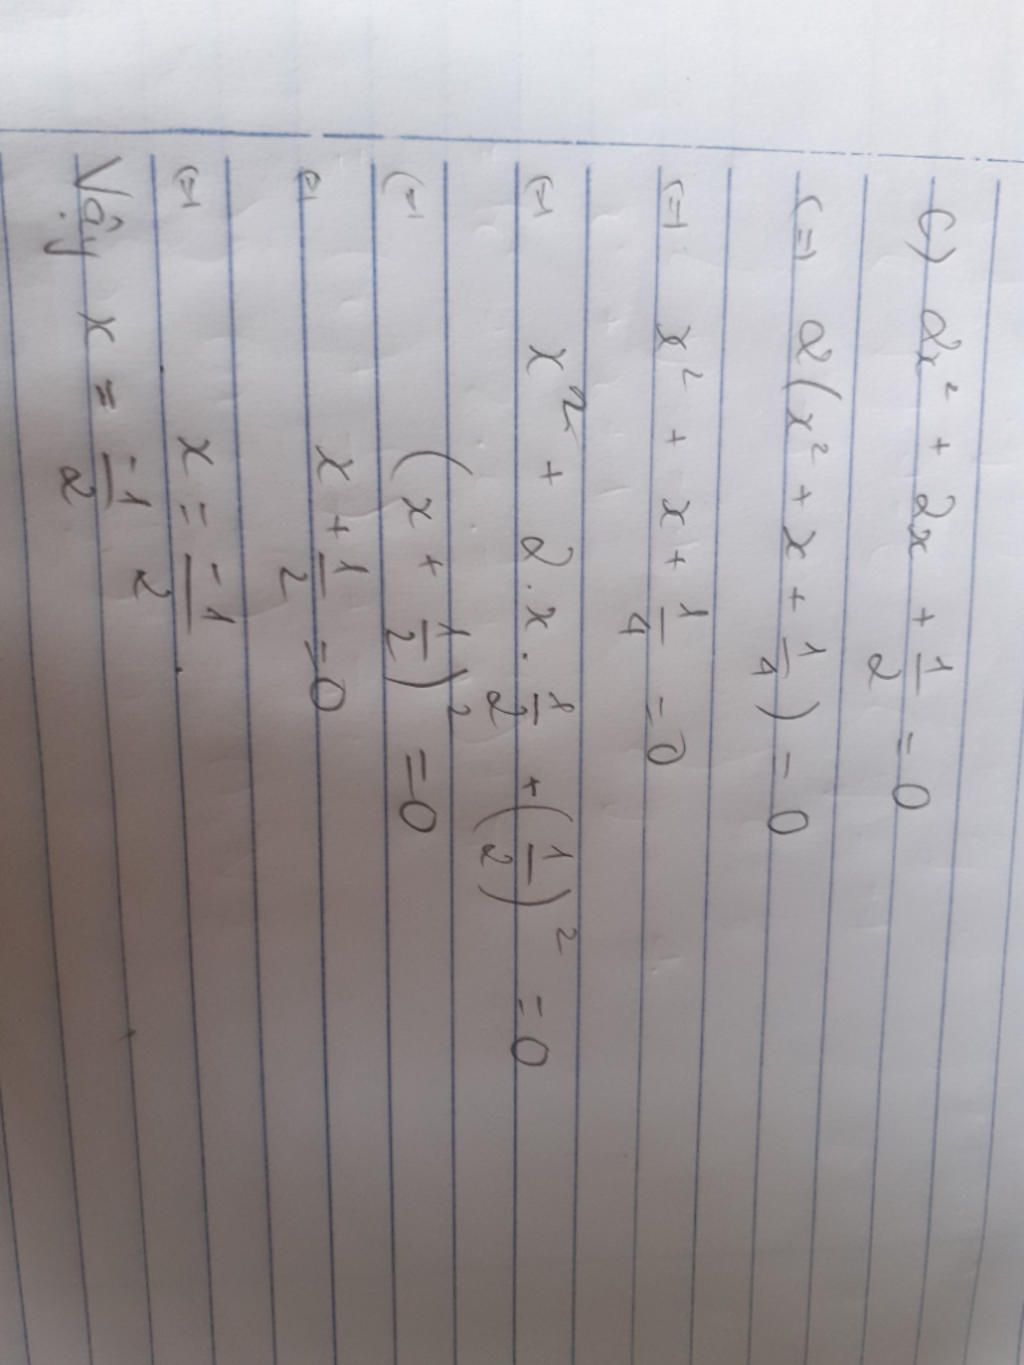 c) 2x² + 2x + 1/2 = 0
(=) 2(x² + x + 1/4) = 0
(=) x² + x + 1/4 = 0
(=) x² + 2.x.1/2 + (1/2)² = 0
(=) (x + 1/2)² = 0
(=) x + 1/2 = 0
(=) x = -1/2.
Vậy x = -1/2